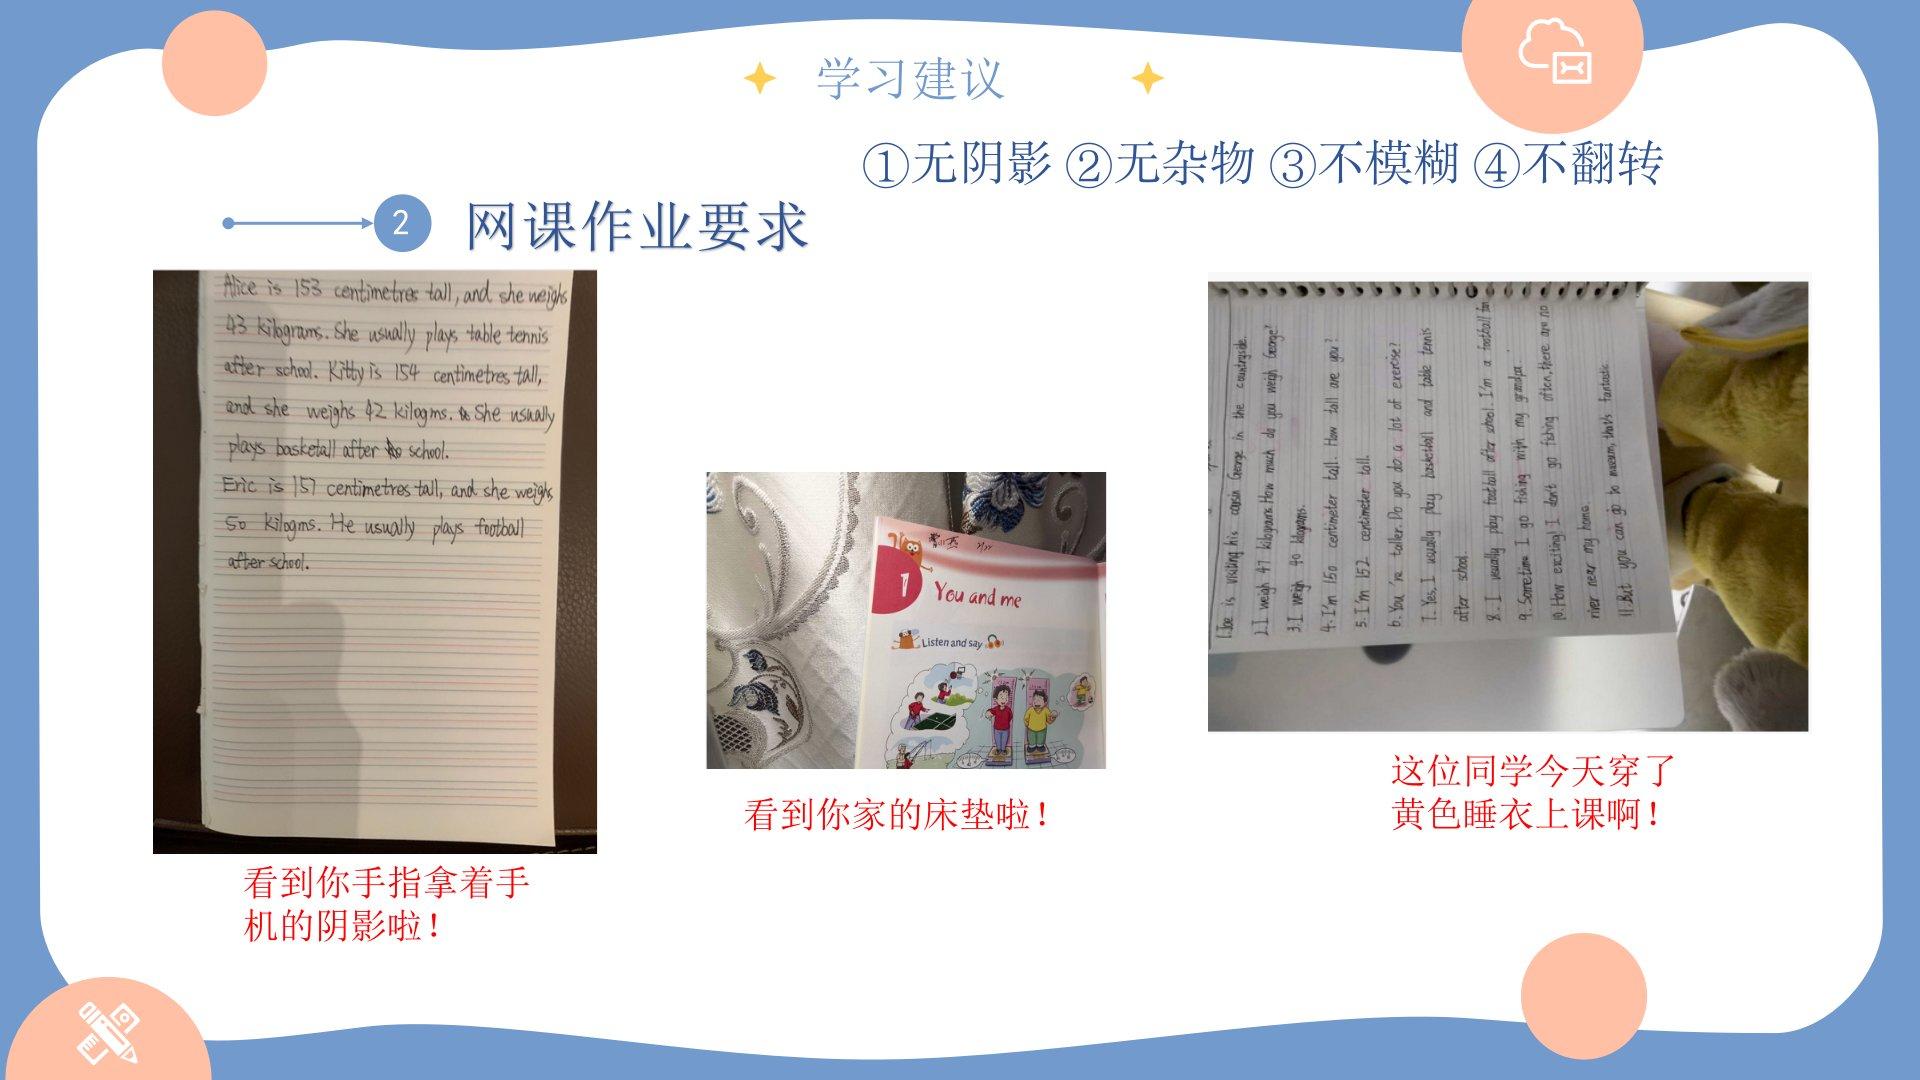 学习建议
①无阴影 ②无杂物 ③不模糊 ④不翻转
2
网课作业要求
Alice is 153 centimetres tall, and she weighs
43 kilograms. She usually plays table tennis
after school. Kitty is 154 centimetres tall,
and she weighs 42 kilogms. She usually
plays basketall after school.
Eric is 157 centimetres tall, and she weighs
50 kilogms. He usually plays football
after school.
看到你手指拿着手
机的阴影啦！
1
You and me
Listen and say
看到你家的床垫啦！
1.Joe is visiting his cousin George in the countryside.
2.I weigh 47 kilograms. How much do you weigh George?
3.I weigh 40 kilograms.
4.I'm 150 centimeter tall. How tall are you?
5.I'm 152 centimeter tall.
6.You're taller. Do you do a lot of exercise?
7.Yes, I usually play basketball and table tennis
after school.
8.I usually play football after school. I'm a football fan
9.Sometime I go fishing with my grandpa.
10.How exciting! I don't go fishing often, there are no
river near my home.
11.But you can go to museum, that's fantastic.
这位同学今天穿了
黄色睡衣上课啊！